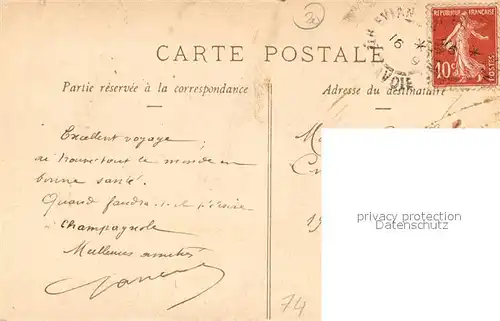 CARTE POSTALE
Partie réservée à la correspondance
Adresse du destinataire
EVIAN
16 * 16 *
9
VOIE
REPUBLIQUE FRANÇAISE
10c
POSTES
Excellent voyage ;
ai trouvé tout le monde en
bonne santé.
Quand faudra-t-il t'écrire
à Champagnole
Meilleures amitiés
19
74
privacy protection
Datenschutz